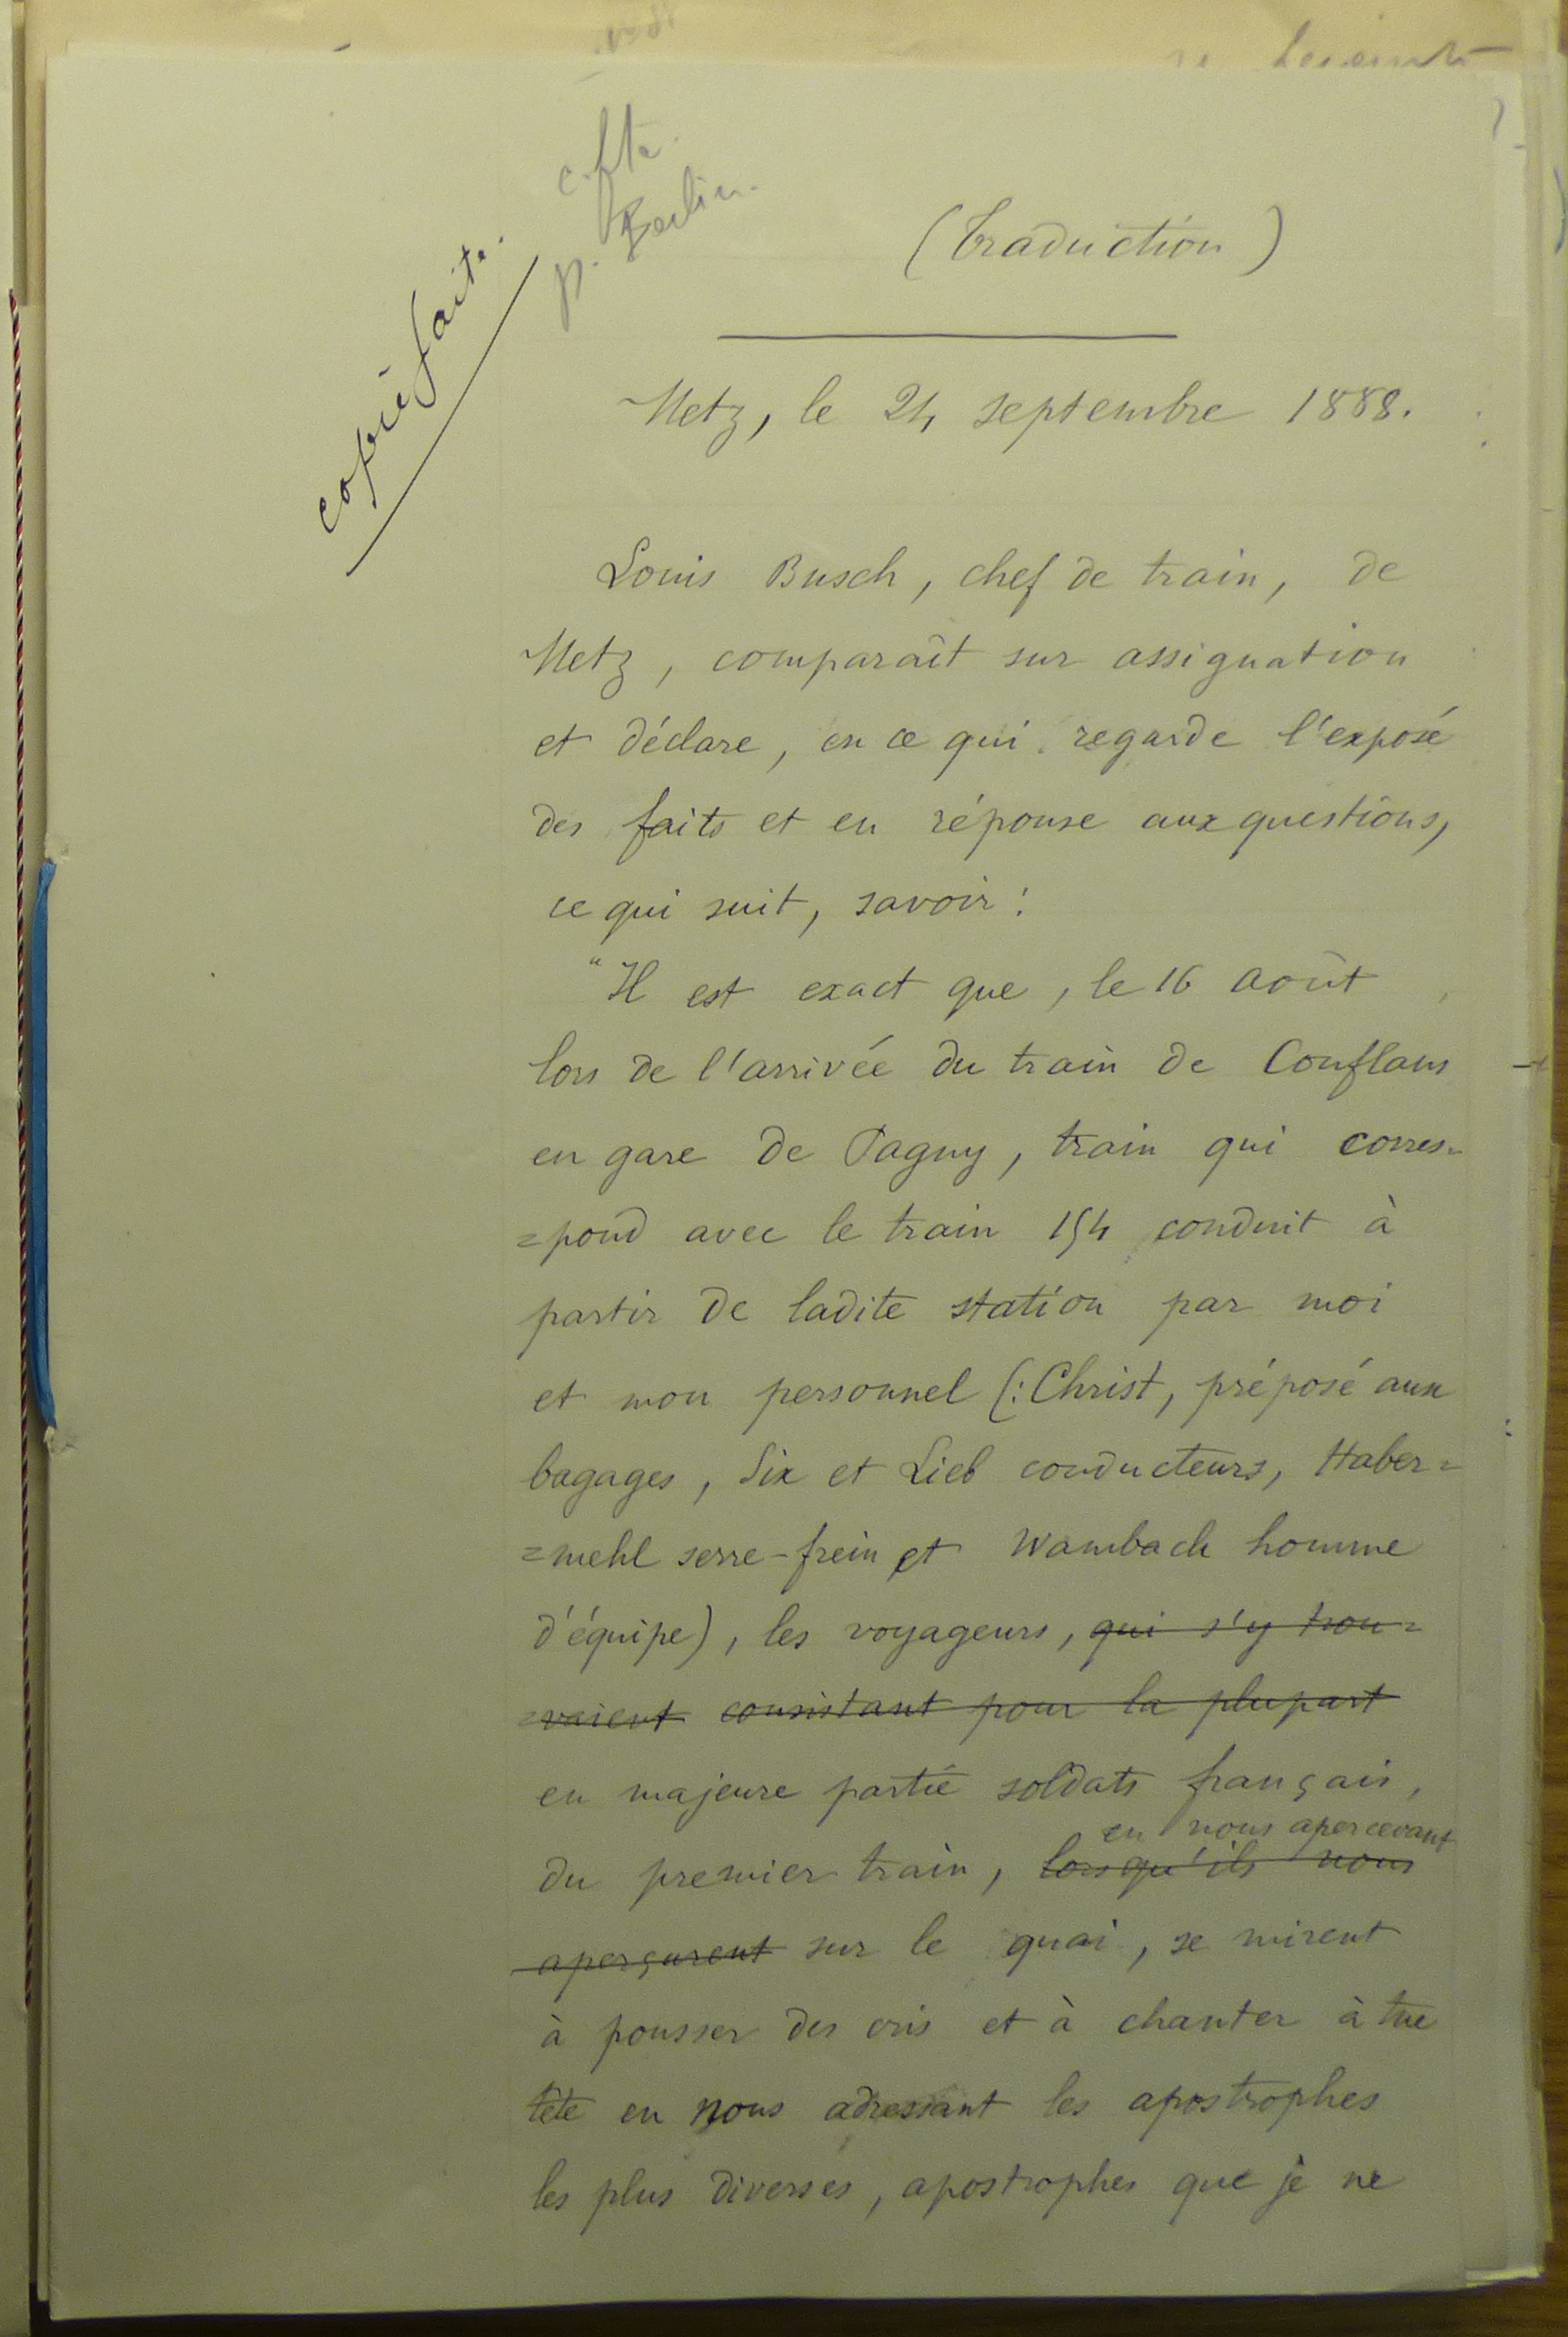 c. fte.
p. Berlin.
copie faite.
(Traduction)
Metz, le 24 septembre 1888.
Louis Busch, chef de train, de
Metz, comparaît sur assignation
et déclare, en ce qui regarde l'exposé
des faits et en réponse aux questions,
ce qui suit, savoir :
"Il est exact que, le 16 août
lors de l'arrivée du train de Conflans
en gare de Pagny, train qui corres=
=pond avec le train 154 conduit à
partir de ladite station par moi
et mon personnel (: Christ, préposé aux
bagages, Six et Lieb conducteurs, Haber=
=mehl serre-frein et Wambach homme
d'équipe), les voyageurs, qui s'y trou=
=vaient consistant pour la plupart
en majeure partie soldats français,
en nous apercevant
du premier train, lorsqu'ils nous
aperçurent sur le quai, se mirent
à pousser des cris et à chanter à tue
tête en nous adressant les apostrophes
les plus diverses, apostrophes que je ne